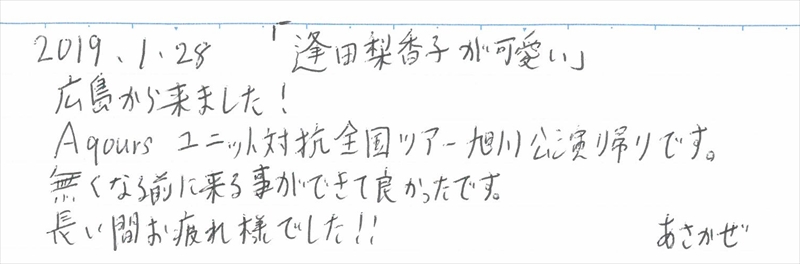 2019.1.28 「逢田梨香子が可愛い」
広島から来ました!
Aqours ユニット対抗全国ツアー旭川公演帰りです。
無くなる前に来る事ができて良かったです。
長い間お疲れ様でした!!
あさかぜ